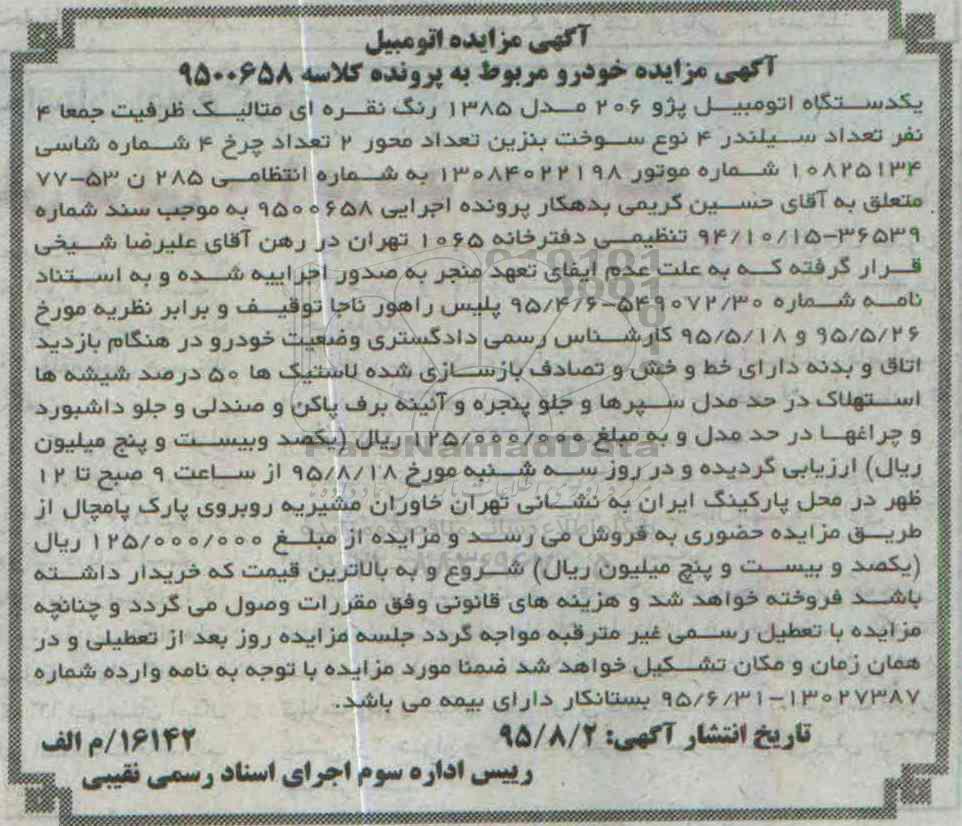 آگهی مزایده اتومبیل
آگهی مزایده خودرو مربوط به پرونده کلاسه ۹۵۰۰۶۵۸
یکدستگاه اتومبیل پژو ۲۰۶ مدل ۱۳۸۵ رنگ نقره ای متالیک ظرفیت جمعا ۴
نفر تعداد سیلندر ۴ نوع سوخت بنزین تعداد محور ۲ تعداد چرخ ۴ شماره شاسی
۱۰۸۲۵۱۳۴ شماره موتور ۱۳۰۸۴۰۲۲۱۹۸ به شماره انتظامی ۲۸۵ ن ۵۳-۷۷
متعلق به آقای حسین کریمی بدهکار پرونده اجرایی ۹۵۰۰۶۵۸ به موجب سند شماره
۳۶۵۳۹-۹۴/۱۰/۱۵ تنظیمی دفترخانه ۱۰۶۵ تهران در رهن آقای علیرضا شیخی
قرار گرفته که به علت عدم ایفای تعهد منجر به صدور اجراییه شده و به استناد
نامه شماره ۵۴۹۰۷۲/۳۰-۹۵/۴/۶ پلیس راهور ناجا توقیف و برابر نظریه مورخ
۹۵/۵/۲۶ و ۹۵/۵/۱۸ کارشناس رسمی دادگستری وضعیت خودرو در هنگام بازدید
اتاق و بدنه دارای خط و خش و تصادف بازسازی شده لاستیک ها ۵۰ درصد شیشه ها
استهلاک در حد مدل سپرها و جلو پنجره و آئینه برف پاکن و صندلی و جلو داشبورد
و چراغها در حد مدل و به مبلغ ۱۲۵/۰۰۰/۰۰۰ ریال (یکصد وبیست و پنج میلیون
ریال) ارزیابی گردیده و در روز سه شنبه مورخ ۹۵/۸/۱۸ از ساعت ۹ صبح تا ۱۲
ظهر در محل پارکینگ ایران به نشانی تهران خاوران مشیریه روبروی پارک پامچال از
طریق مزایده حضوری به فروش می رسد و مزایده از مبلغ ۱۲۵/۰۰۰/۰۰۰ ریال
(یکصد و بیست و پنج میلیون ریال) شروع و به بالاترین قیمت که خریدار داشته
باشد فروخته خواهد شد و هزینه های قانونی وفق مقررات وصول می گردد و چنانچه
مزایده با تعطیل رسمی غیر مترقبه مواجه گردد جلسه مزایده روز بعد از تعطیلی و در
همان زمان و مکان تشکیل خواهد شد ضمنا مورد مزایده با توجه به نامه وارده شماره
۱۳۰۲۷۳۸۷-۹۵/۶/۳۱ بستانکار دارای بیمه می باشد.
تاریخ انتشار آگهی: ۹۵/۸/۲ ۱۶۱۴۲/م الف
رییس اداره سوم اجرای اسناد رسمی نقیبی
ParsNamadData